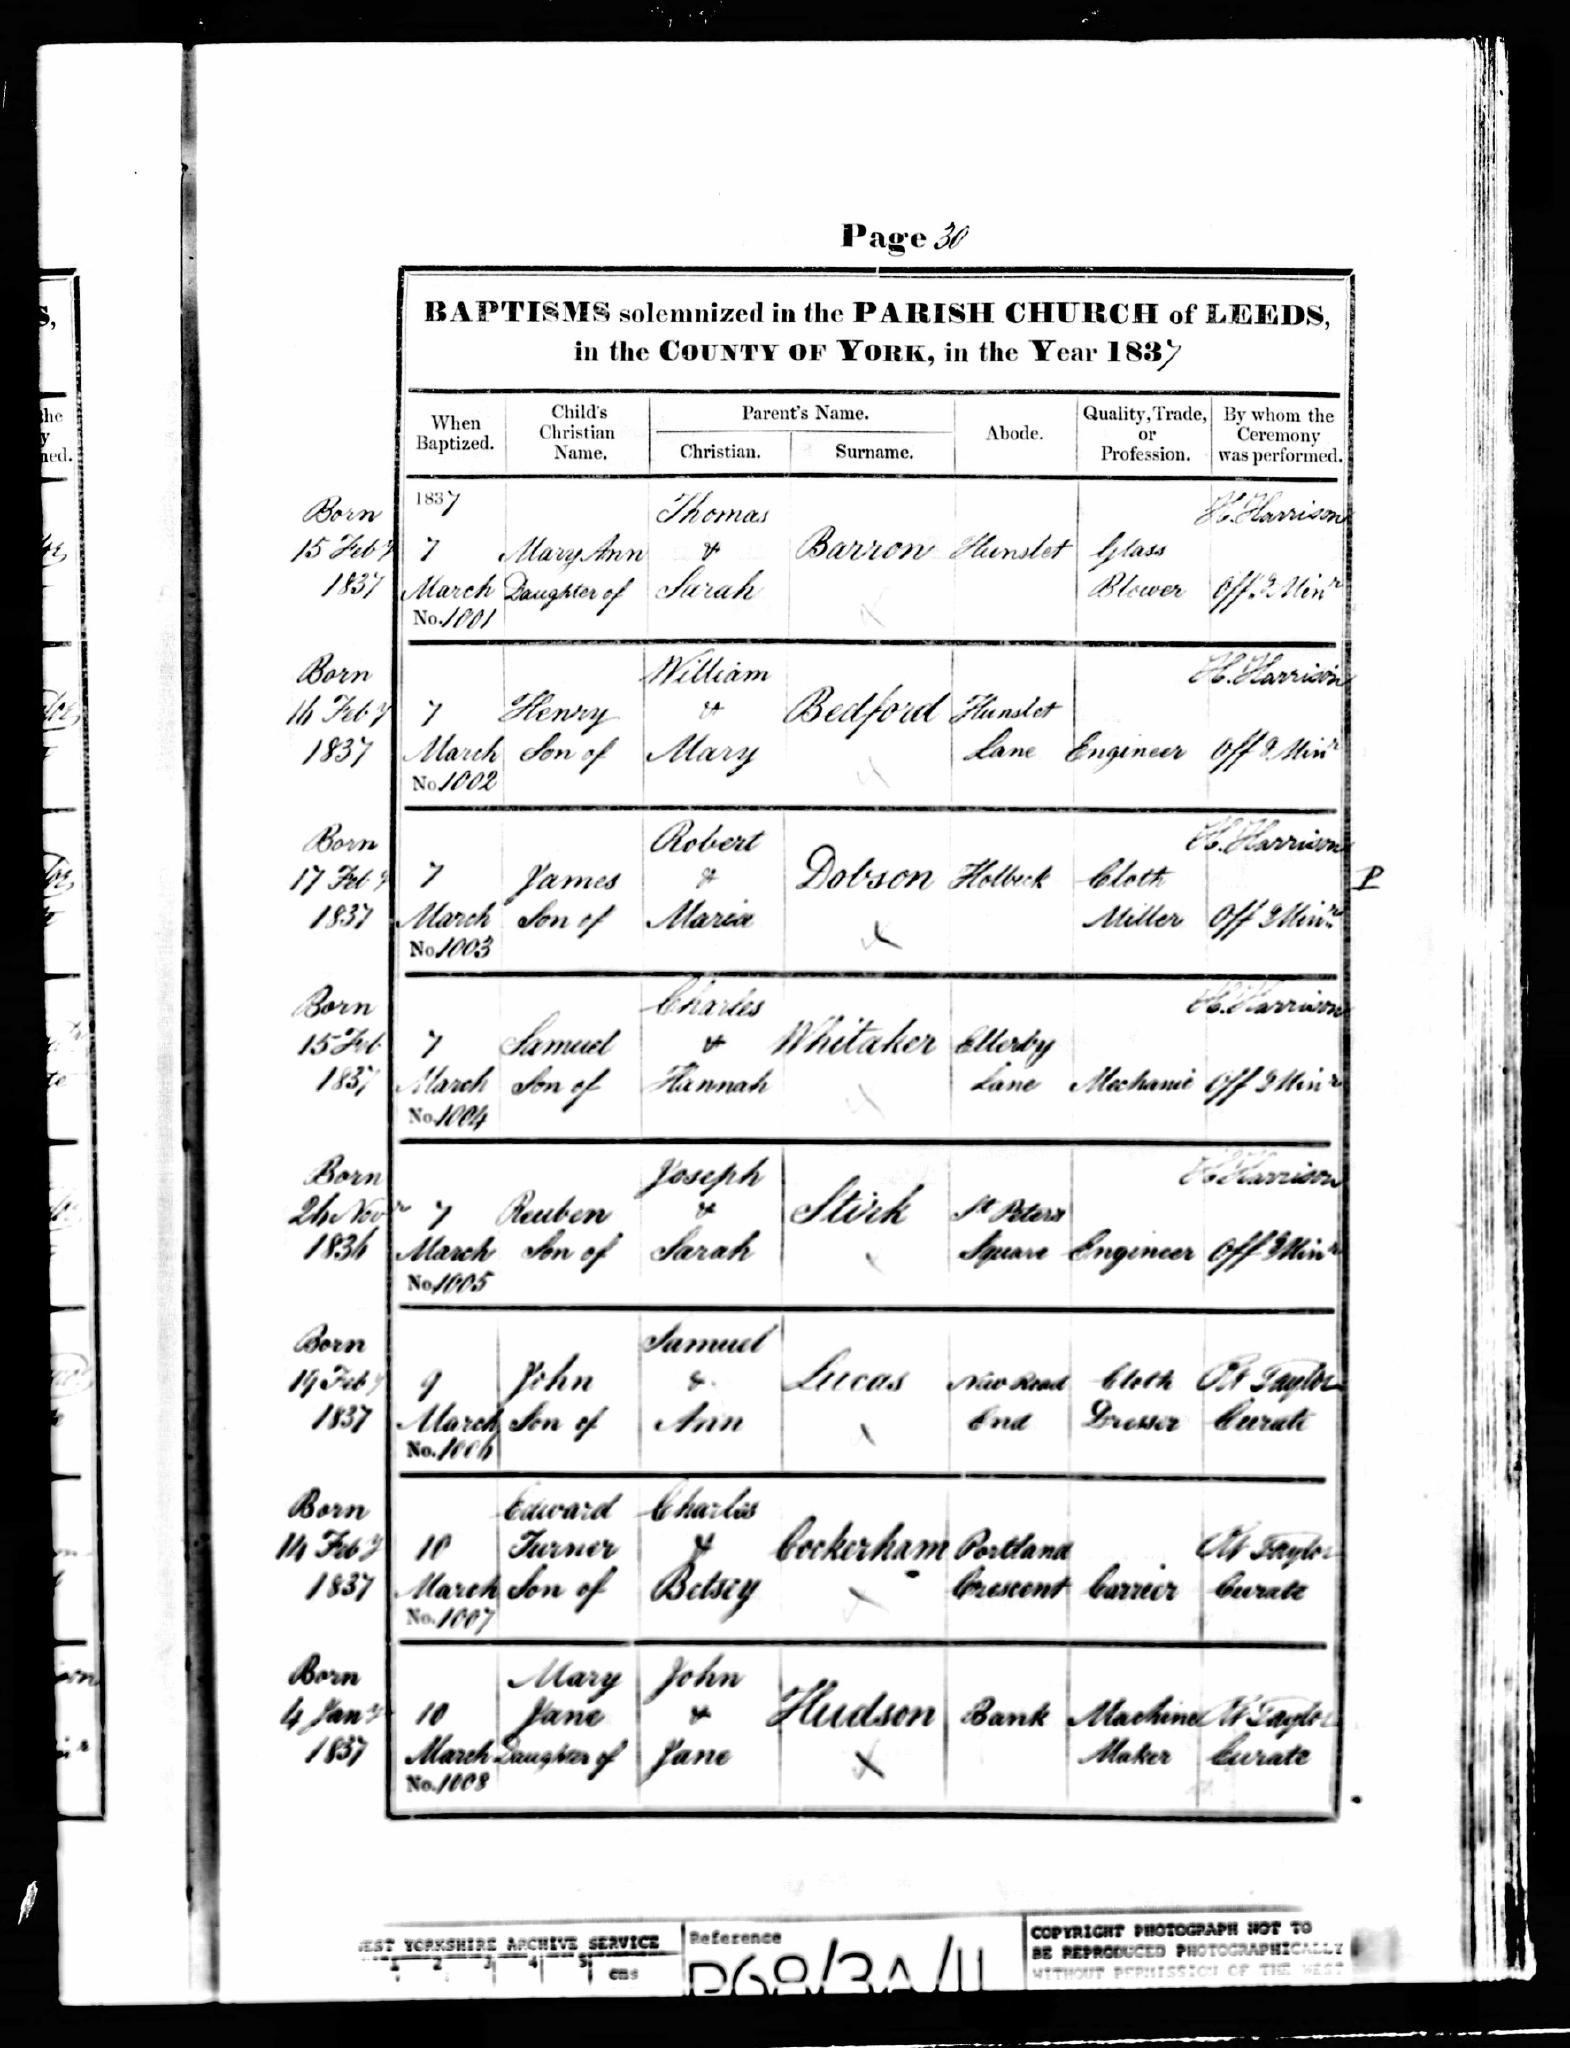 Page 30
BAPTISMS solemnized in the PARISH CHURCH of LEEDS,
in the COUNTY OF YORK, in the Year 1837
When Baptized.
Child's Christian Name.
Parent's Name.
Christian.
Surname.
Abode.
Quality, Trade, or Profession.
By whom the Ceremony was performed.
1837 Thomas H. Harrison
Born
15 Feby 7 Mary Ann & Barron Hunslet Glass
1837 March Daughter of Sarah Blower Offg Minr
No. 1001
Born William H. Harrison
16 Feby 7 Henry & Bedford Hunslet
1837 March Son of Mary Lane Engineer Offg Minr
No. 1002
Born Robert H. Harrison
17 Feby 7 James & Dobson Holbeck Cloth P
1837 March Son of Maria Miller Offg Minr
No. 1003
Born Charles H. Harrison
15 Feb 7 Samuel & Whitaker Ellerby
1837 March Son of Hannah Lane Mechanic Offg Minr
No. 1004
Born Joseph H Harrison
26 Novr 7 Reuben & Stirk St Peters
1836 March Son of Sarah Square Engineer Offg Minr
No. 1005
Born Samuel
19 Feby 9 John & Lucas New Road Cloth Rt Taylor
1837 March Son of Ann End Dresser Curate
No. 1006
Born Edward Charles
14 Feby 10 Turner & Cockerham Portland Rt Taylor
1837 March Son of Betsey Crescent Carrier Curate
No. 1007
Born Mary John
4 Jany 10 Jane & Hudson Bank Machine Rt Taylor
1837 March Daughter of Jane Maker Curate
No. 1008
WEST YORKSHIRE ARCHIVE SERVICE
1 2 3 4 5 cms
Reference
P68/3A/11
COPYRIGHT PHOTOGRAPH NOT TO
BE REPRODUCED PHOTOGRAPHICALLY
WITHOUT PERMISSION OF THE WEST